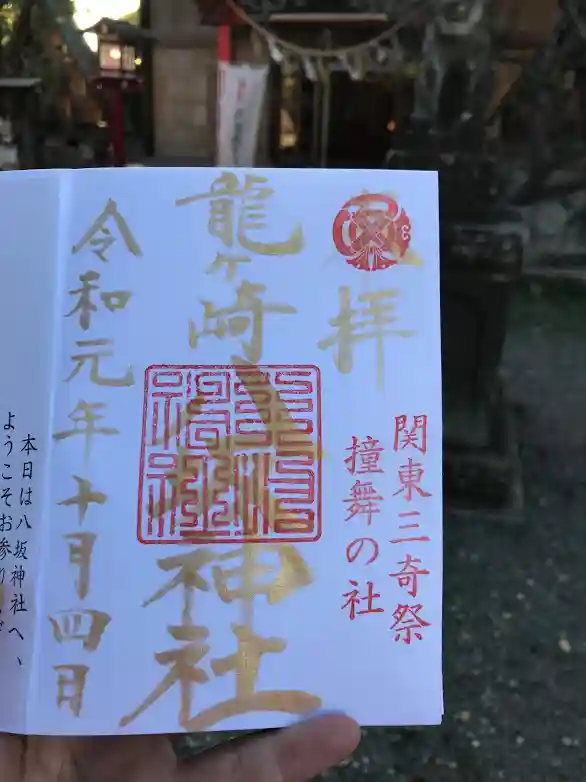 奉拝
関東三奇祭
撞舞の社
龍ヶ崎八坂神社
令和元年十月四日
本日は八坂神社へ、
ようこそお参り